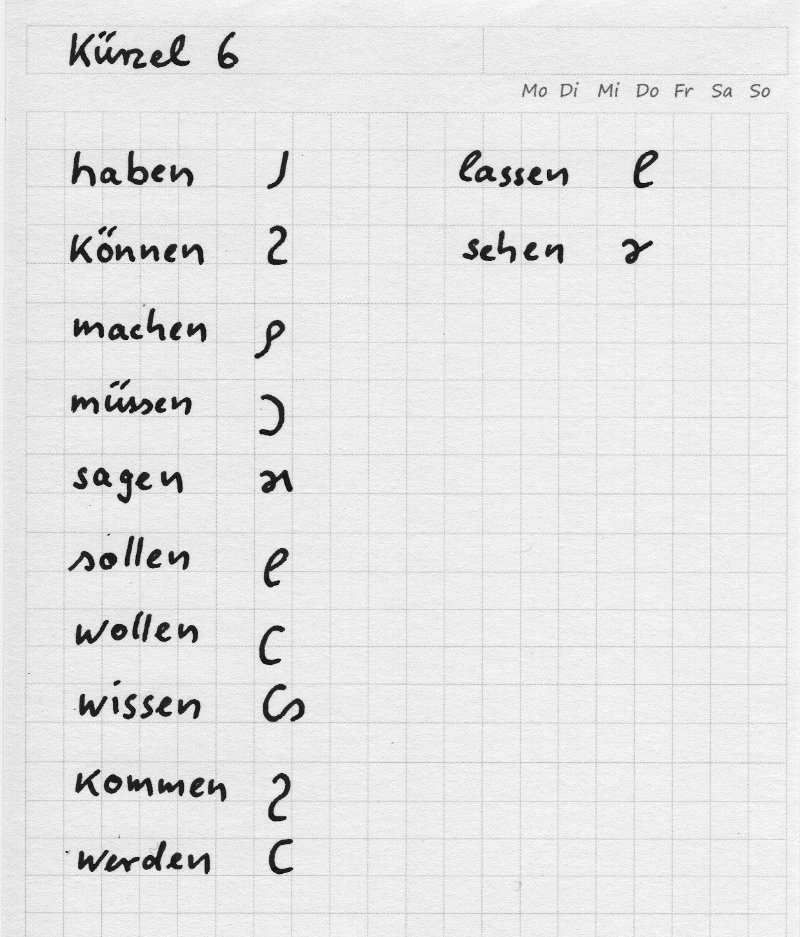 Kürzel 6
Mo Di Mi Do Fr Sa So
haben
können
machen
müssen
sagen
sollen
wollen
wissen
kommen
werden
lassen
sehen